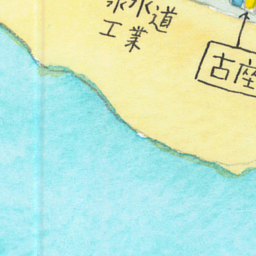 水道
工業
古座